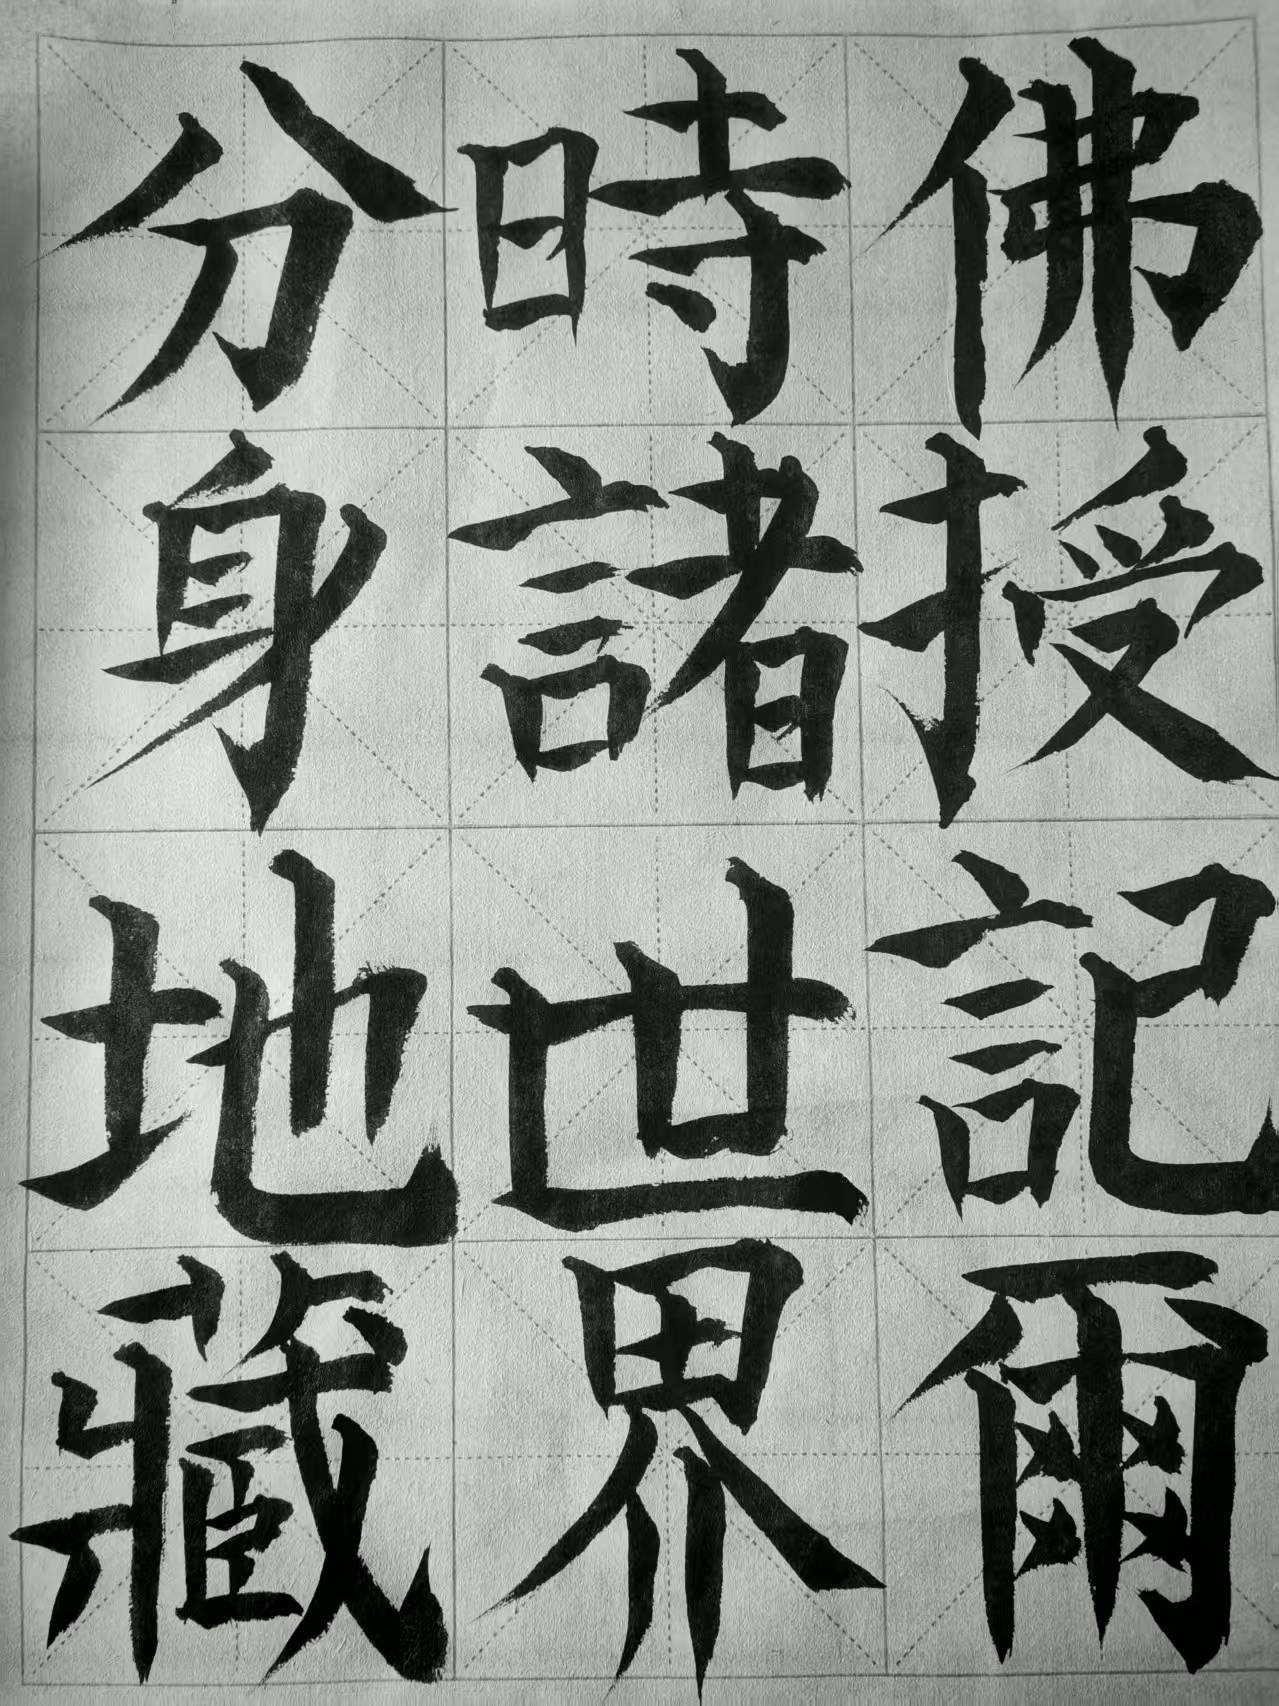 佛授記爾
時諸世界
分身地藏